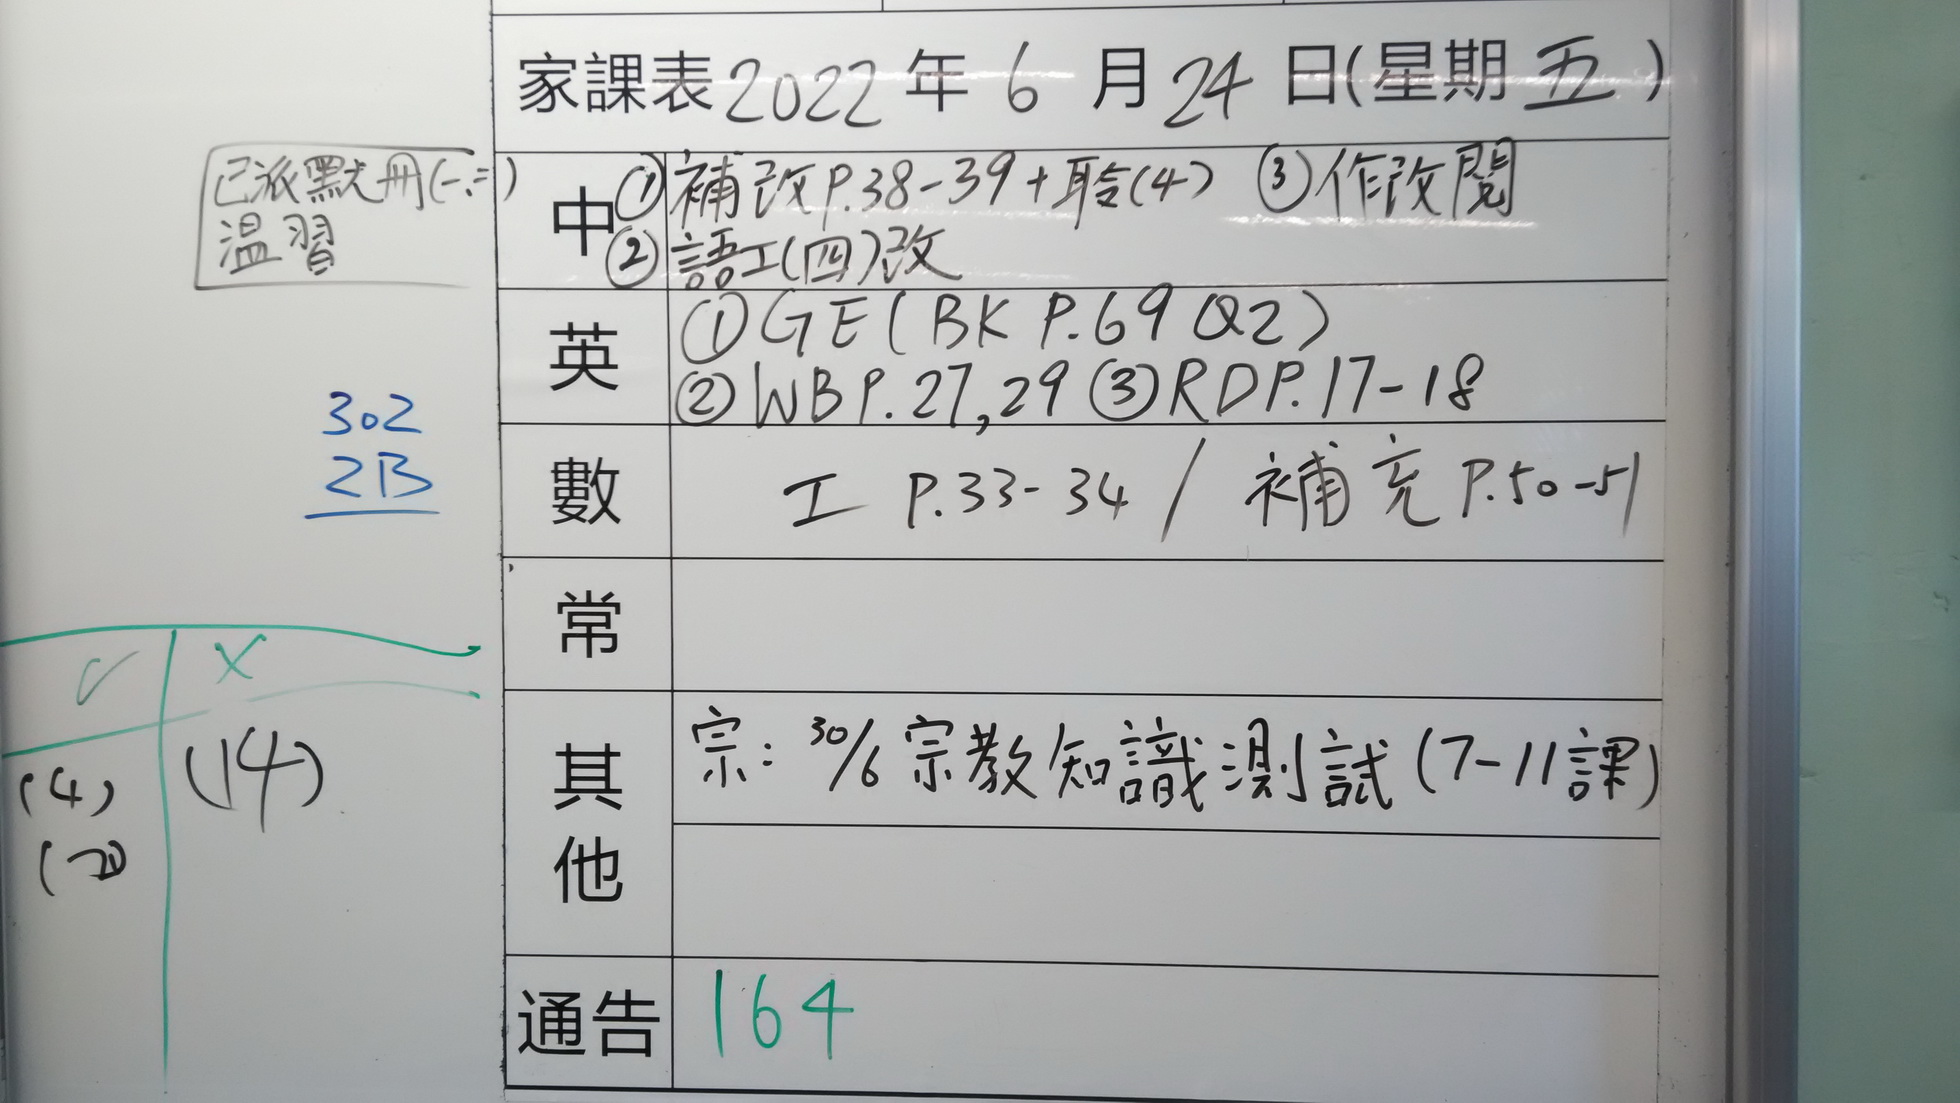 家課表2022年6月24日(星期五)
已派默冊(一.二)
溫習
中
①補改P.38-39+聆(4) ③作改閱
②語工(四)改
英
①GE(BK P.69 Q2)
②WB P.27,29 ③RD P.17-18
302
2B
數
工 P.33-34 / 補充 P.50-51
常
✓ ×
(4) (14)
其他
宗: 30/6 宗教知識測試(7-11課)
通告
164